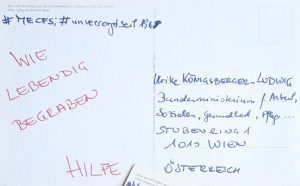 #MECFS, #unversorgt seit 1969
WIE
LEBENDIG
BEGRABEN
HILFE
Ulrike KÖNIGSBERGER-LUDWIG
Bundesministerium f. Arbeit,
Soziales, Gesundheit, Pflege...
STUBENRING 1
1010 WIEN
ÖSTERREICH